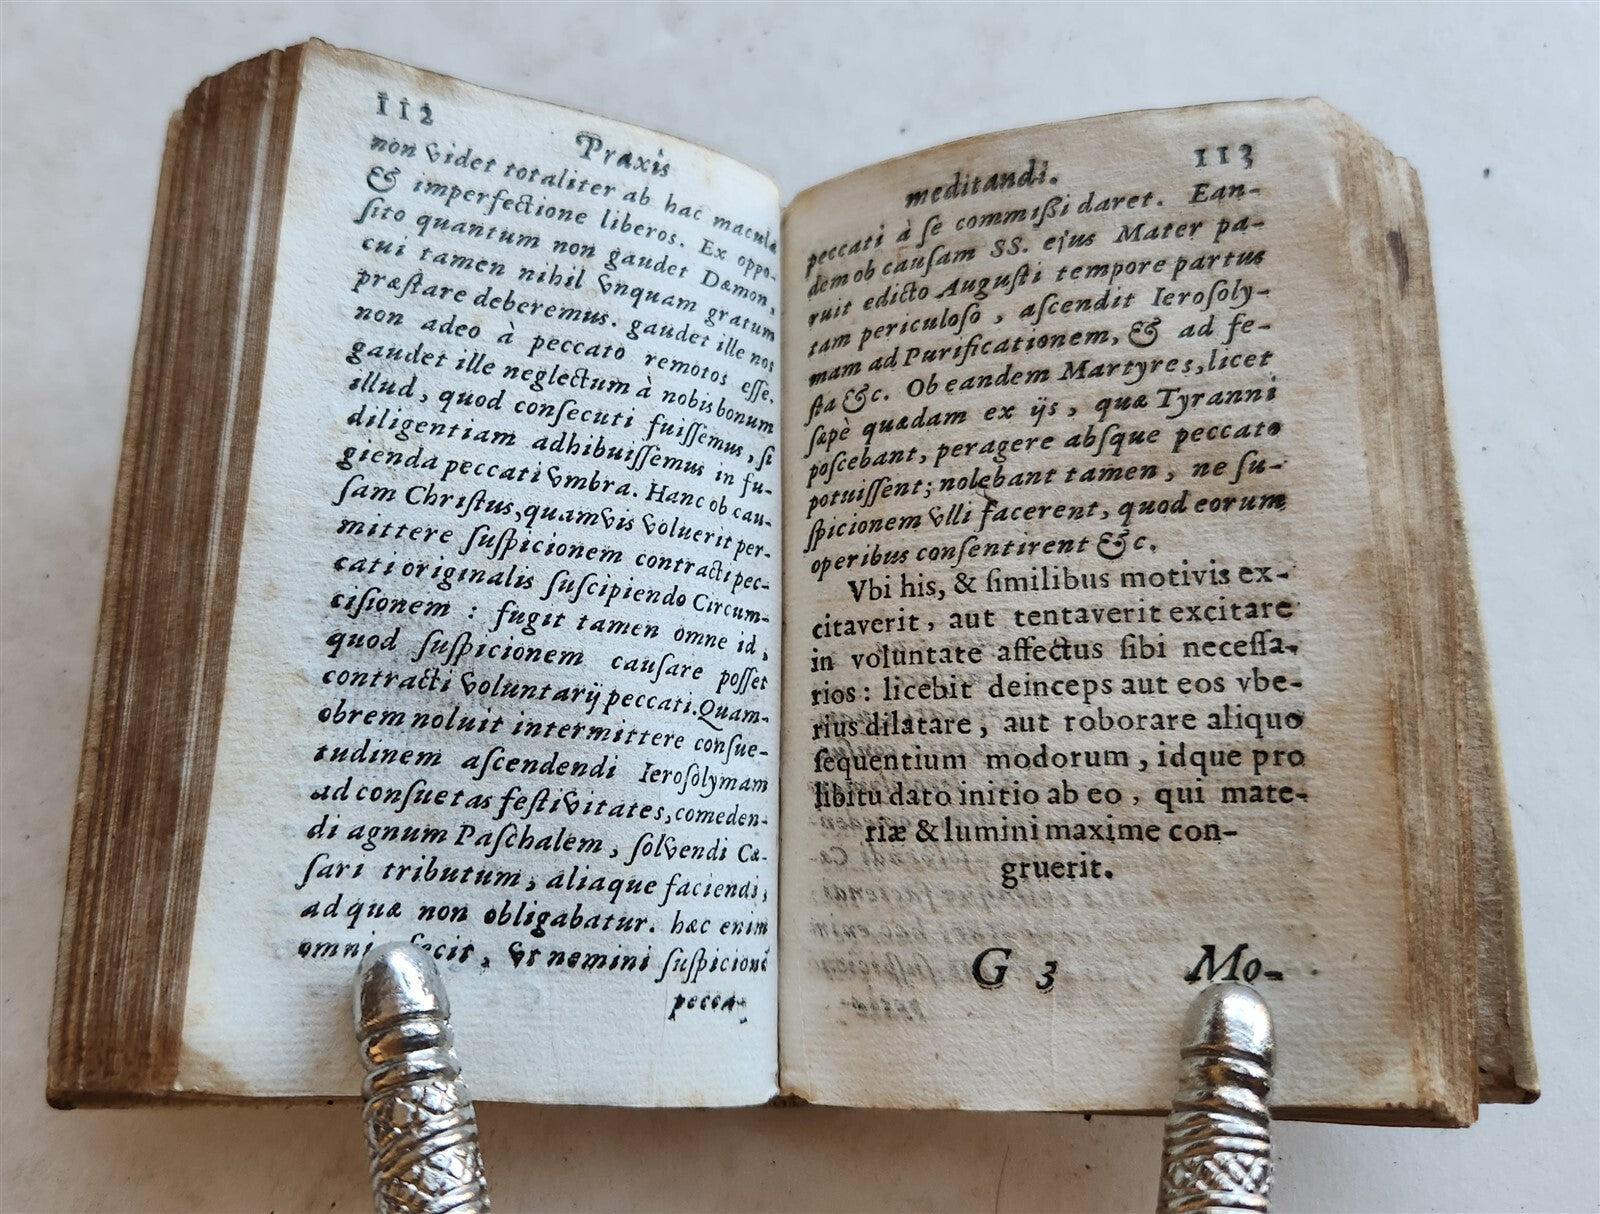 112
Praxis
non videt totaliter ab hac macula
& imperfectione liberos. Ex oppo-
sito quantum non gaudet Dæmon,
cui tamen nihil vnquam gratum
præstare deberemus. gaudet ille nos
non adeo à peccato remotos esse.
gaudet ille neglectum à nobis bonum
illud, quod consecuti fuissemus, si
diligentiam adhibuissemus in fu-
gienda peccati vmbra. Hanc ob cau-
sam Christus, quamvis voluerit per-
mittere suspicionem contracti pec-
cati originalis suscipiendo Circum-
cisionem : fugit tamen omne id,
quod suspicionem causare posset
contracti voluntarij peccati. Quam-
obrem noluit intermittere consue-
tudinem ascendendi Ierosolymam
ad consuetas festivitates, comeden-
di agnum Paschalem, solvendi Cæ-
sari tributum, aliaque faciendi,
ad quæ non obligabatur. hæc enim
fecit, vt nemini suspicionē
pecca-
meditandi.
113
peccati à se commißi daret. Ean-
dem ob causam SS. ejus Mater pa-
ruit edicto Augusti tempore partus
tam periculoso, ascendit Ierosoly-
mam ad Purificationem, & ad fe-
sta &c. Ob eandem Martyres, licet
sæpè quædam ex ijs, quæ Tyranni
poscebant, peragere absque peccato
potuissent; nolebant tamen, ne su-
spicionem vlli facerent, quod eorum
operibus consentirent &c.
Vbi his, & similibus motivis ex-
citaverit, aut tentaverit excitare
in voluntate affectus sibi necessa-
rios : licebit deinceps aut eos vbe-
rius dilatare, aut roborare aliquo
sequentium modorum, idque pro
libitu dato initio ab eo, qui mate-
riæ & lumini maxime con-
gruerit.
G 3
Mo-